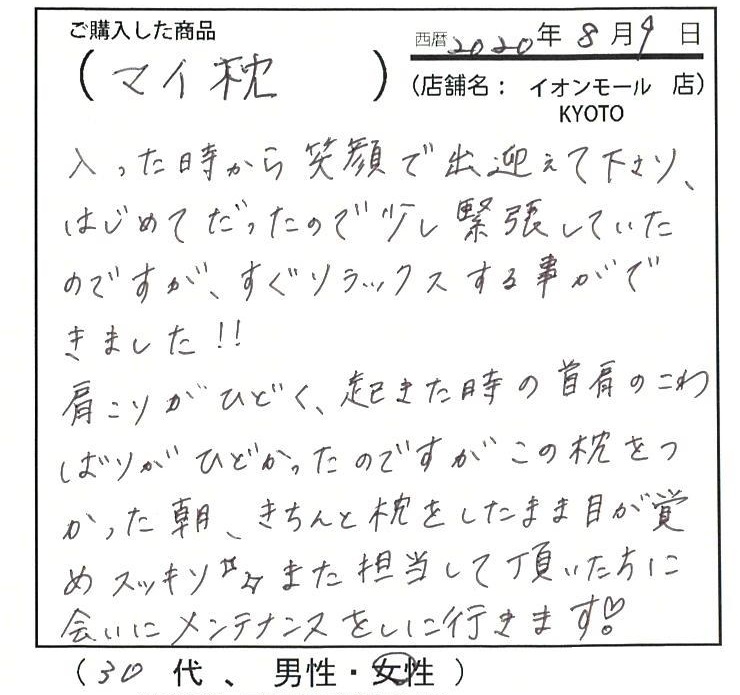 ご購入した商品
西暦 2020年 8月9日
(マイ枕)
(店舗名: イオンモール 店)
KYOTO
入った時から笑顔で出迎えて下さり、
はじめてだったので少し緊張していた
のですが、すぐリラックスする事がで
きました!!
肩こりがひどく、起きた時の首肩のこわ
ばりがひどかったのですがこの枕をつ
かった朝、きちんと枕をしたまま目が覚
めスッキリ☆☆また担当して頂いた方に
会いにメンテナンスをしに行きます♡!
(30代、男性・女性)